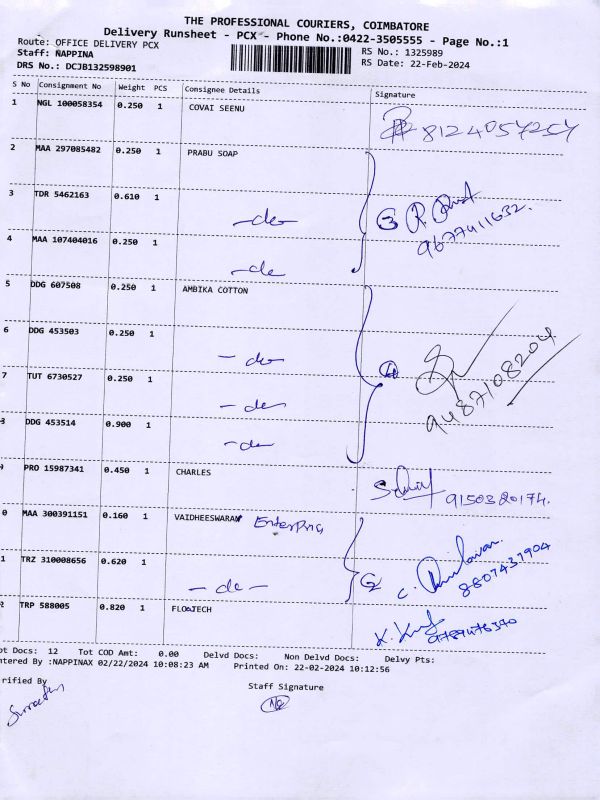 THE PROFESSIONAL COURIERS, COIMBATORE
Delivery Runsheet - PCX - Phone No.:0422-3505555 - Page No.:1
Route: OFFICE DELIVERY PCX
Staff: NAPPINA
DRS No.: DCJB132598901
RS No.: 1325989
RS Date: 22-Feb-2024
S No Consignment No Weight PCS Consignee Details Signature
1 NGL 100058354 0.250 1 COVAI SEENU 8124057254
2 MAA 297085482 0.250 1 PRABU SOAP
3 TDR 5462163 0.610 1 -do- 3 9677411632.
4 MAA 107404016 0.250 1 -do
5 DDG 607508 0.250 1 AMBIKA COTTON
6 DDG 453503 0.250 1 -do-
7 TUT 6730527 0.250 1 -do- 4 9487108204
DDG 453514 0.900 1 -do-
PRO 15987341 0.450 1 CHARLES 9150320174.
0 MAA 300391151 0.160 1 VAIDHEESWARAN
1 TRZ 310008656 0.620 1 -do- 2 8807437904
TRP 588005 0.820 1 FLOATECH
ot Docs: 12 Tot COD Amt: 0.00 Delvd Docs: Non Delvd Docs: Delvy Pts:
ntered By :NAPPINAX 02/22/2024 10:08:23 AM Printed On: 22-02-2024 10:12:56
rified By
Staff Signature